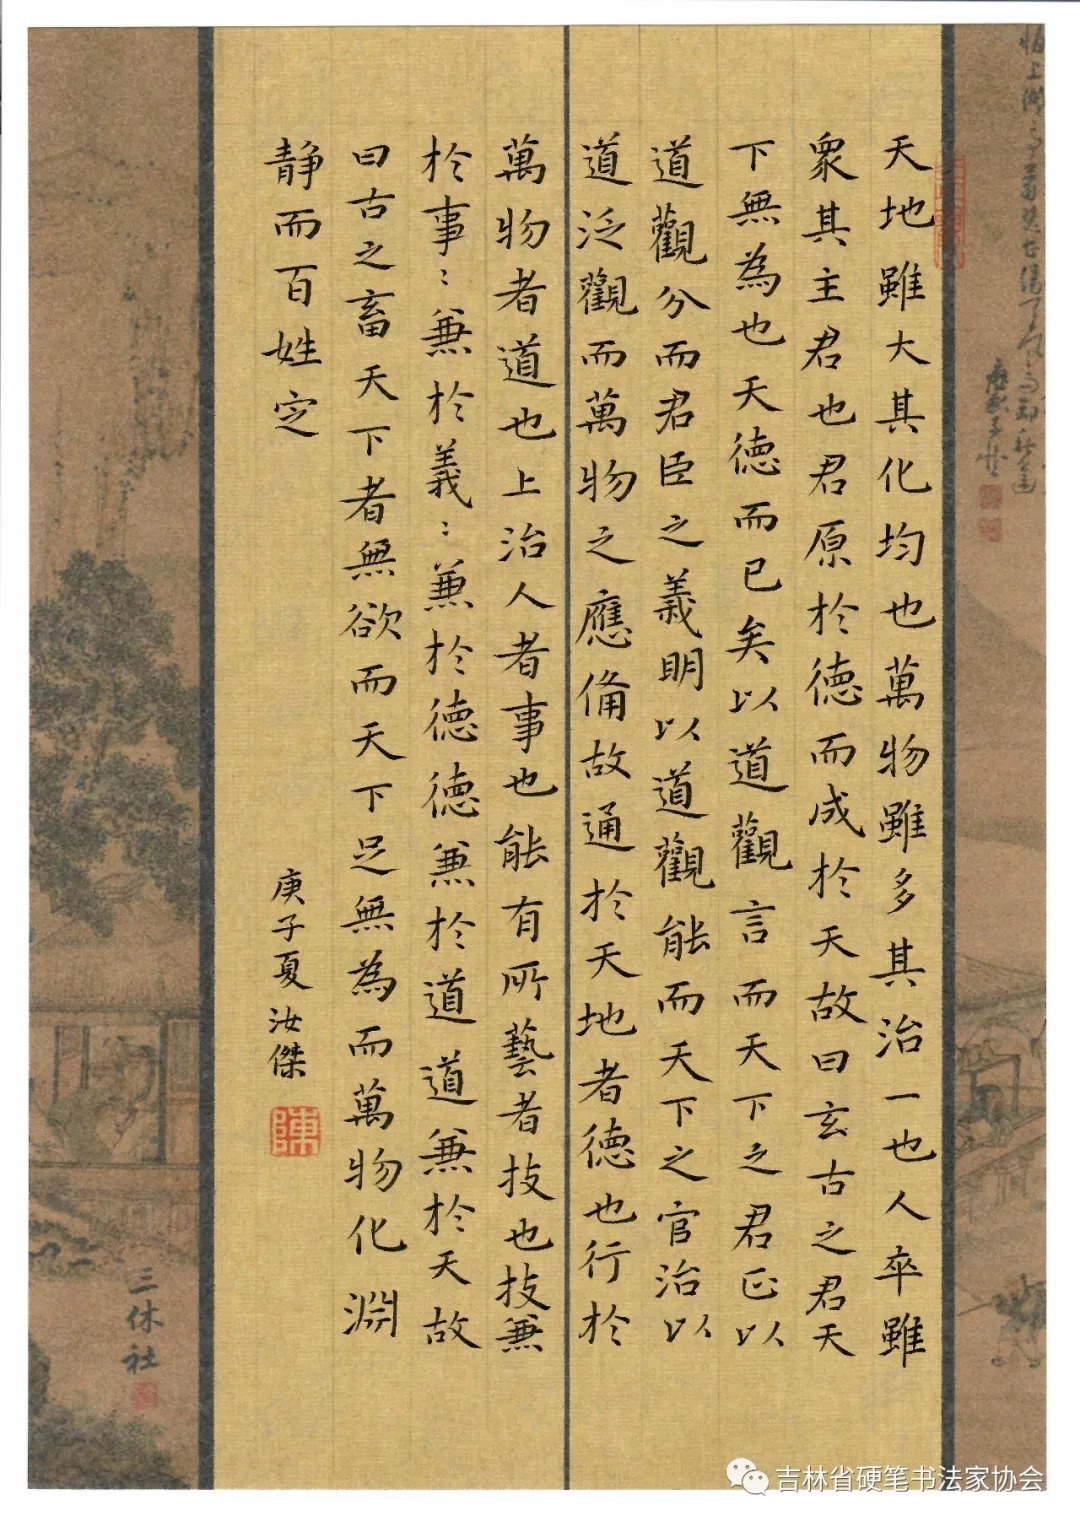 天地雖大其化均也萬物雖多其治一也人卒雖
衆其主君也君原於德而成於天故曰玄古之君天
下無為也天德而已矣以道觀言而天下之君正以
道觀分而君臣之義明以道觀能而天下之官治以
道泛觀而萬物之應備故通於天地者德也行於
萬物者道也上治人者事也能有所藝者技也技兼
於事：兼於義：兼於德德兼於道道兼於天故
曰古之畜天下者無欲而天下足無為而萬物化淵
静而百姓定
庚子夏汝傑
陳
三休社
吉林省硬笔书法家协会